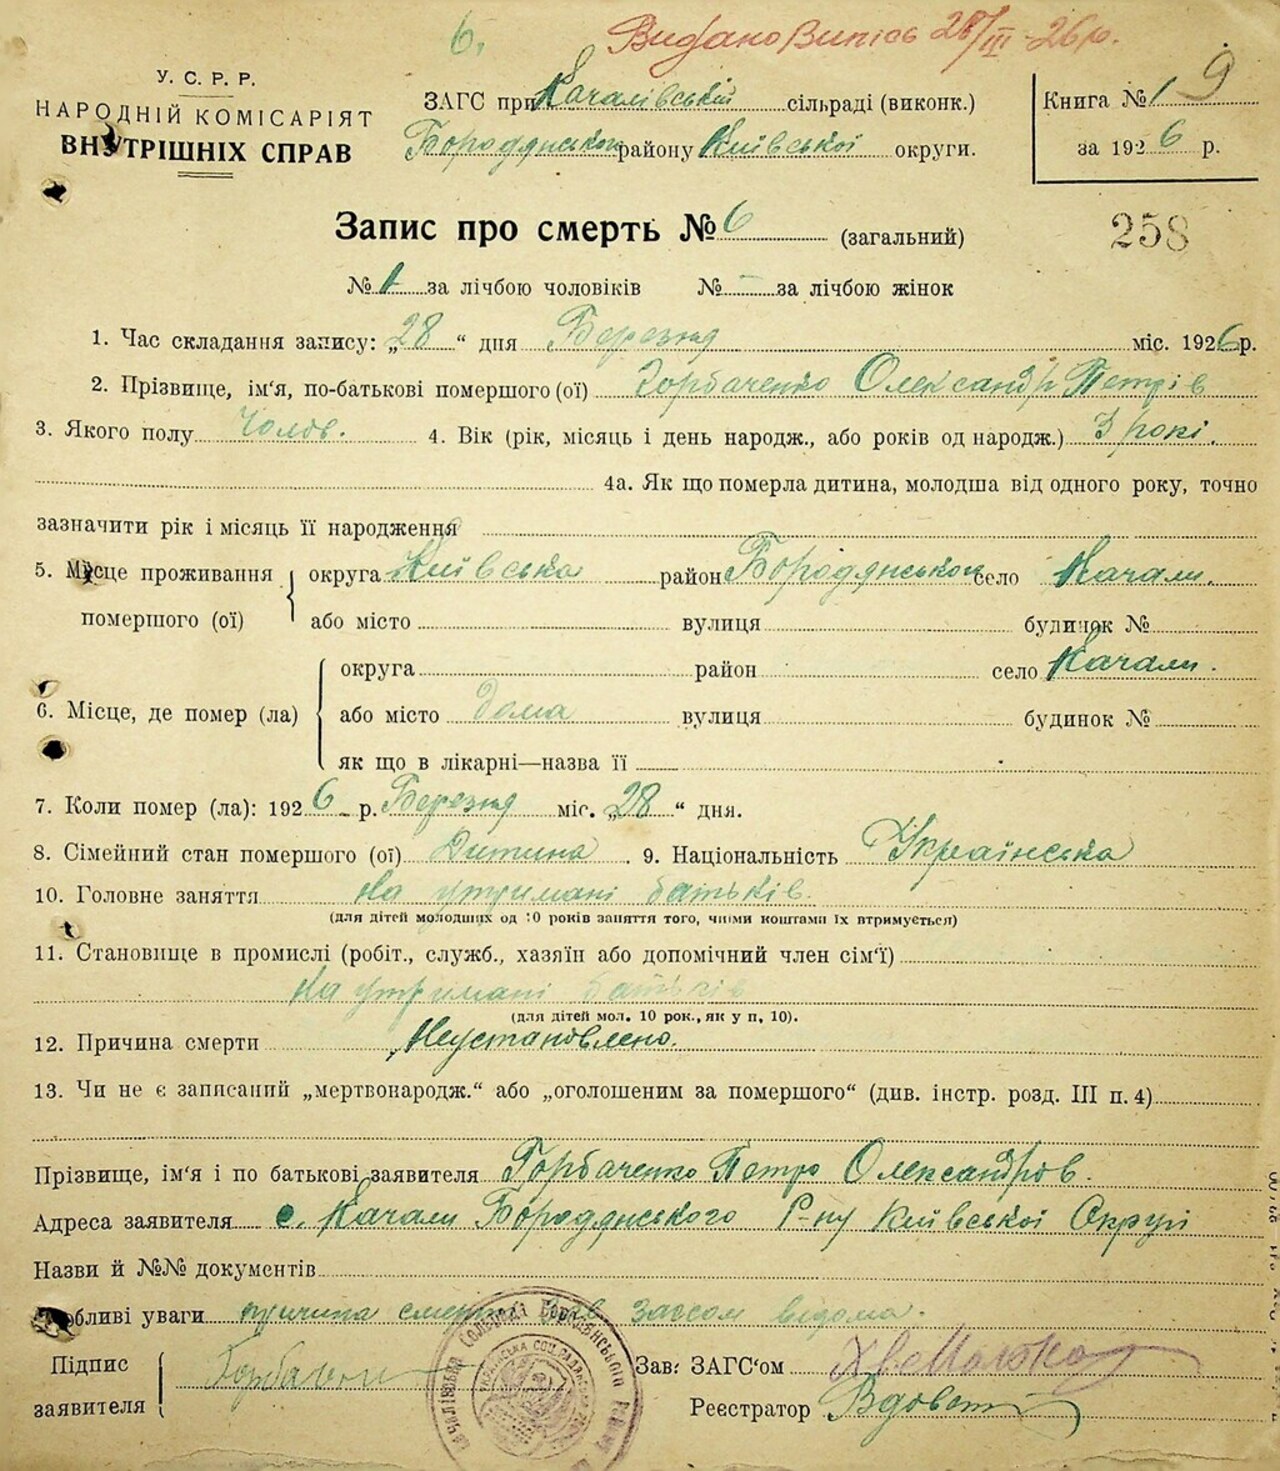 6.
Видано Випісь 28/III-26р.
У. С. Р. Р.
НАРОДНІЙ КОМІСАРІЯТ
ВНУТРІШНІХ СПРАВ
ЗАГС при Качалівській сільраді (виконк.)
Бородянського району Київської округи.
Книга № 1 9
за 1926 р.
Запис про смерть № 6 (загальний)
258
№ 1 за лічбою чоловіків № – за лічбою жінок
1. Час складання запису: „28“ дня Березня міс. 1926 р.
2. Прізвище, ім‘я, по-батькові помершого (ої) Горбаченко Олександр Петрів
3. Якого полу Чолов. 4. Вік (рік, місяць і день народж., або років од народж.) 3 рокі.
4а. Як що померла дитина, молодша від одного року, точно
зазначити рік і місяць її народження
5. Місце проживання помершого (ої) округа Київська район Бородянського село Качали.
або місто вулиця будинок №
6. Місце, де помер (ла) округа район село Качали.
або місто дома вулиця будинок №
як що в лікарні—назва її
7. Коли помер (ла): 1926 р. Березня міс. „28“ дня.
8. Сімейний стан помершого (ої) Дитина. 9. Національність Українська
10. Головне заняття на утримані батьків.
(для дітей молодших од 10 років заняття того, чиїми коштами їх втримується)
11. Становище в промислі (робіт., служб., хазяїн або допомічний член сім‘ї)
на утримані батьків
(для дітей мол. 10 рок., як у п. 10).
12. Причина смерти Неустановлено.
13. Чи не є записаний „мертвонародж.“ або „оголошеним за помершого“ (див. інстр. розд. III п. 4)
Прізвище, ім‘я і по батькові заявителя Горбаченко Петро Олександров.
Адреса заявителя с. Качали Бородянського Р-ну Київської Округі
Назви й №№ документів
Особливі уваги причина смерти загсом відома.
Підпис заявителя Горбачен
Зав. ЗАГС‘ом
Реєстратор